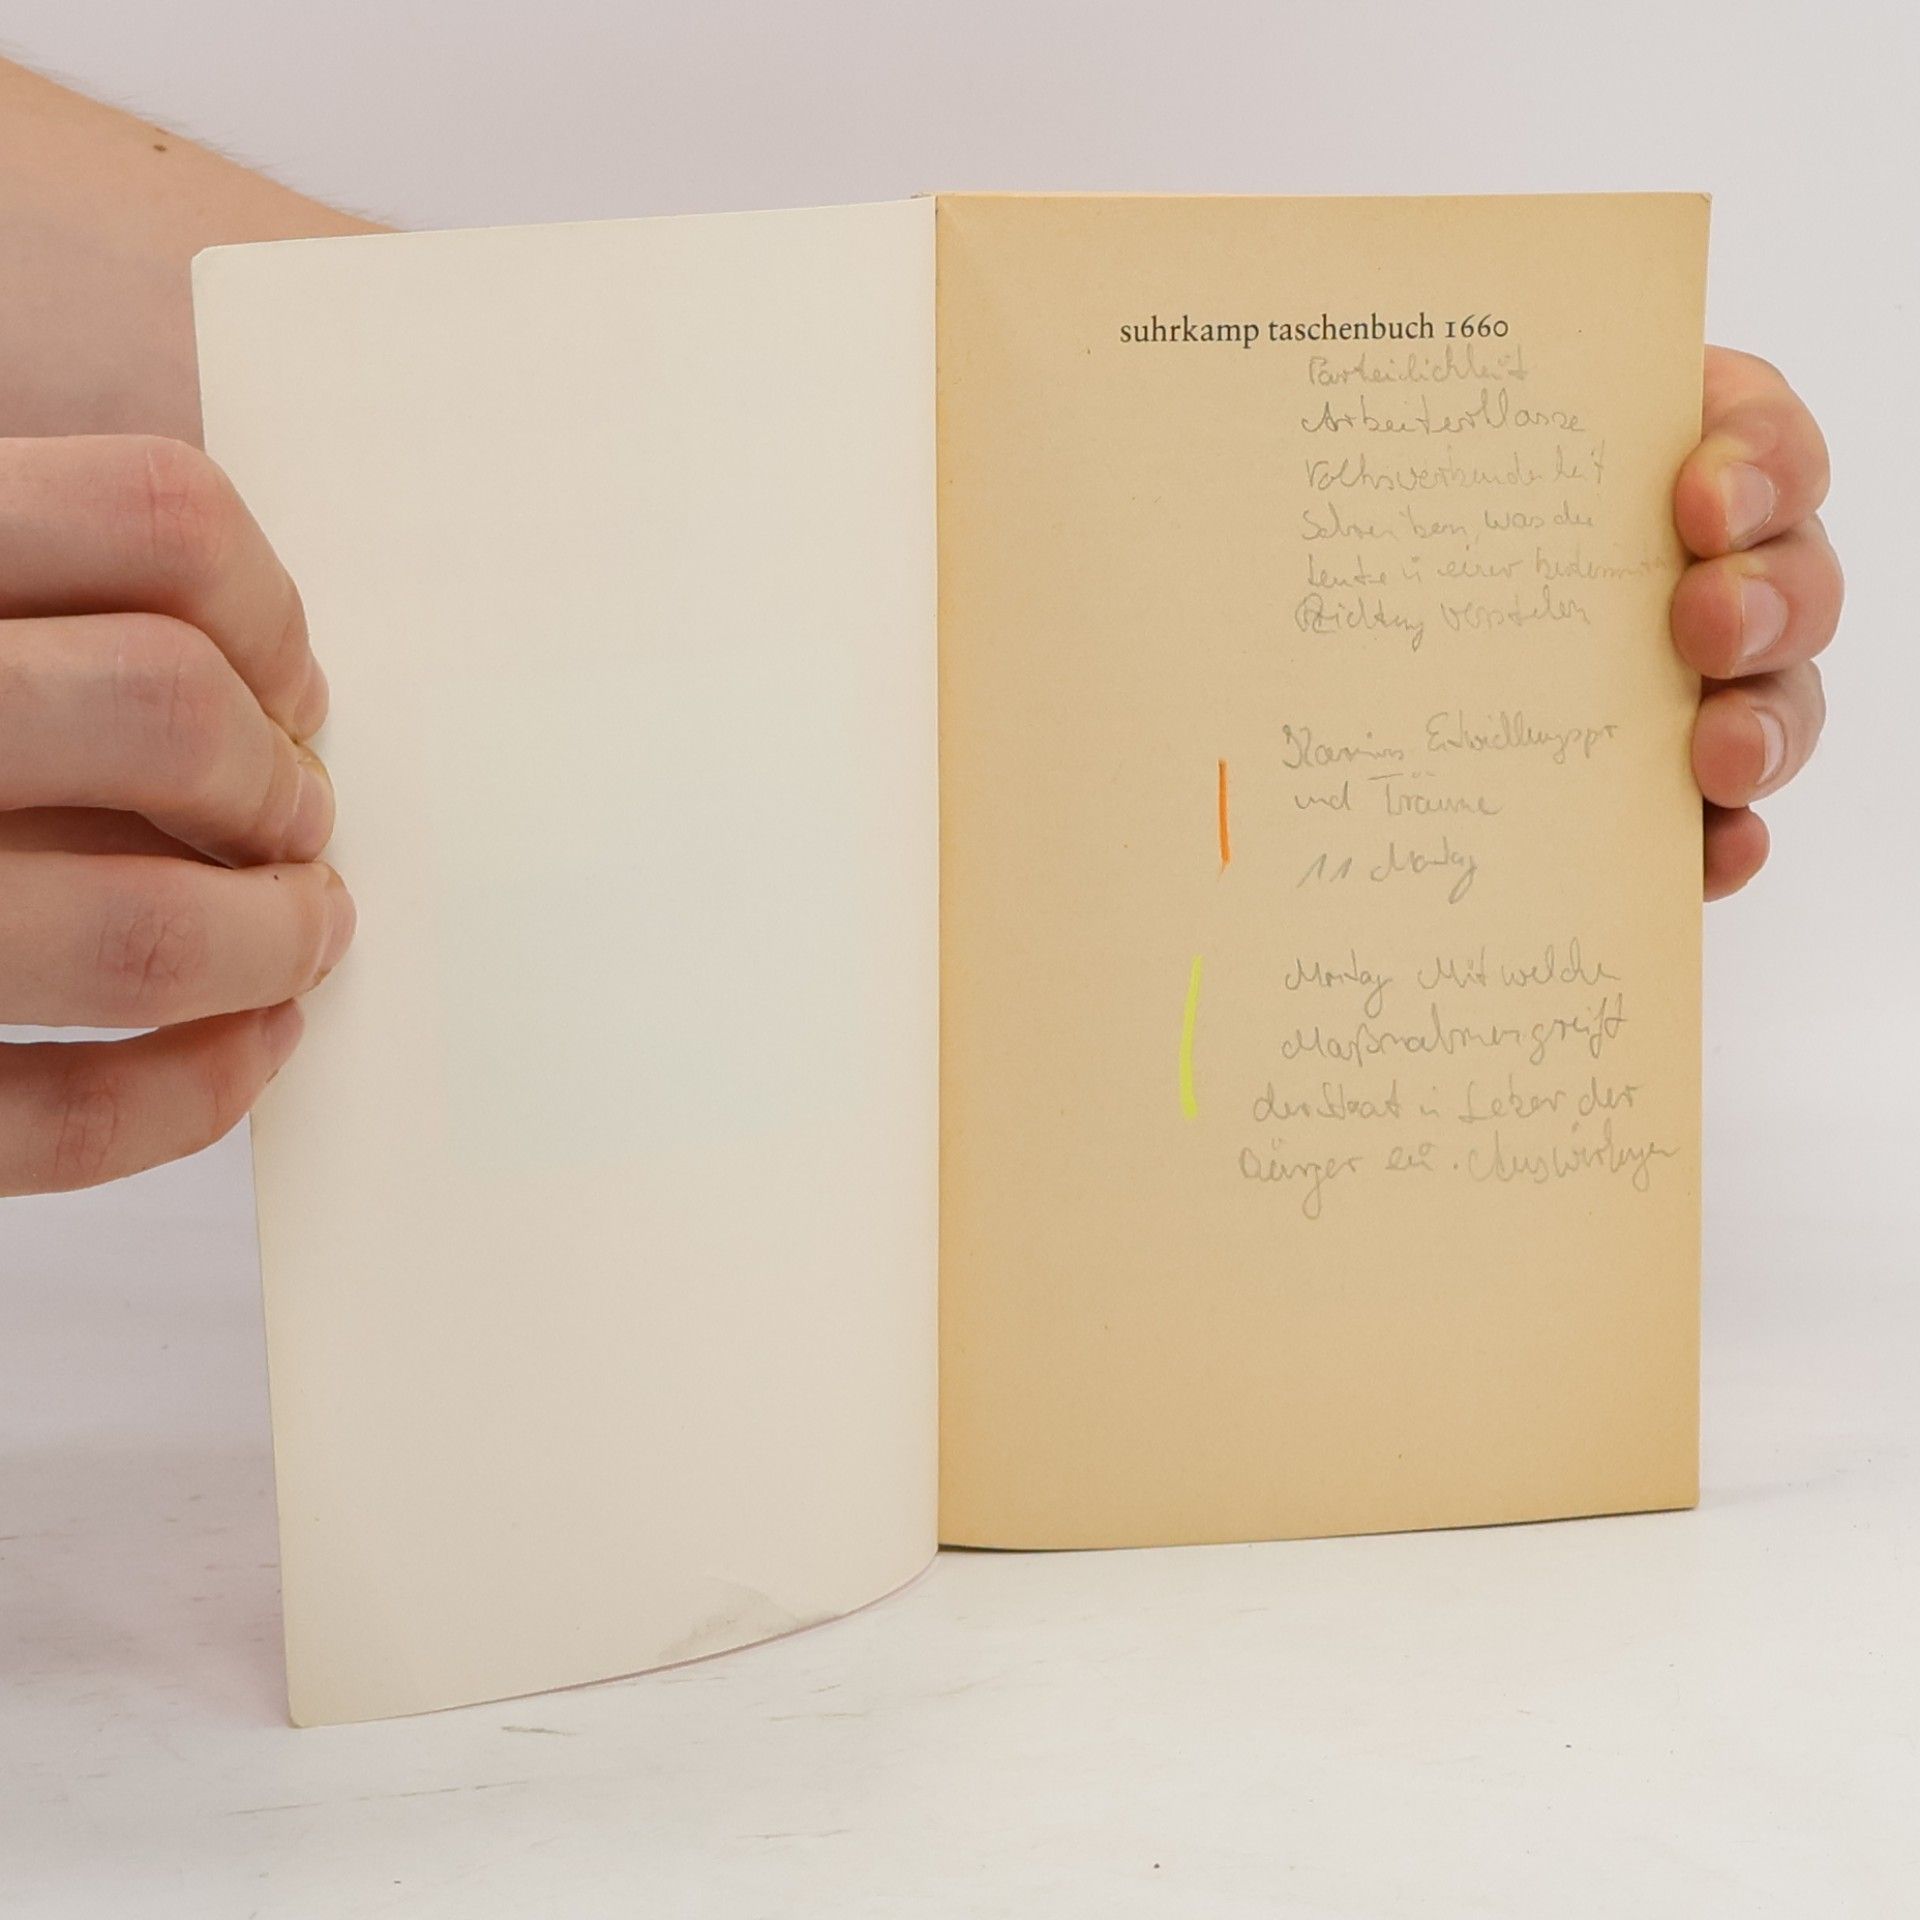 suhrkamp taschenbuch 1660
Parteilichkeit
Arbeiterklasse
Volksverbundenheit
Schreiben, was die
Leute in einer bestimmten
Richtung verstehen
Entwicklungspr
und Träume
11 Montag
Montag Mit welchen
Maßnahmen greift
der Staat in Leben der
Bürger ein. Auswirkungen